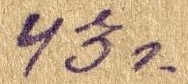 43 г.